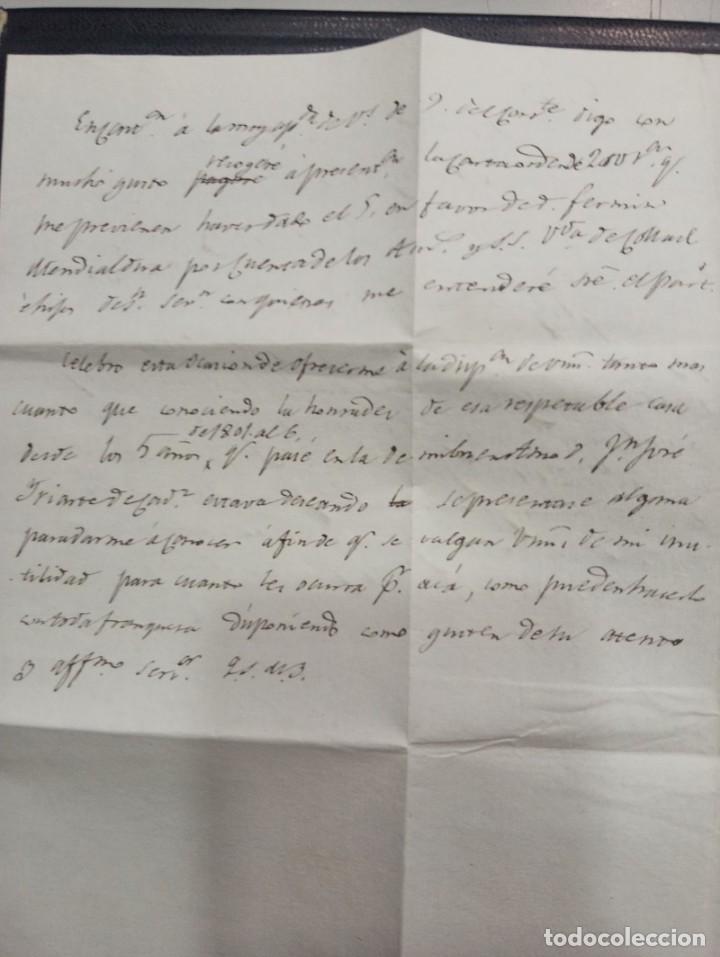 En Cont.on à la muy ap.da de Vs. de 9 del Corr.te digo con
mucho gusto pagaré recogeré à present.on la carta orden de 2000 r.s q.e
me previenen haver dado el 5, en favor de d. fermin
Mendialdua por cuenta de los Am.s y S.S. V.da de Collael
è hijos de S.n Seb.n con quienes me entenderé s̃re. el part.
Celebro esta ocasion de ofrecerme à la disp.on de Vms. tanto mas
cuanto que conociendo la honradez de esa respetable casa
desde los 5 años del 801. al 6, q.e pasé en la de mi buen Amo d. J.n José
Yriarte de Cad.z estava deseando la se presentase alguna
para darme à conocer à fin de q.e se valgan Vms. de mi inu-
-tilidad para cuanto les ocurra p.r acá, como pueden hacerlo
con toda franqueza disponiendo como gusten de su atento
affmo. serv.or q.s.m.B.
todocoleccion